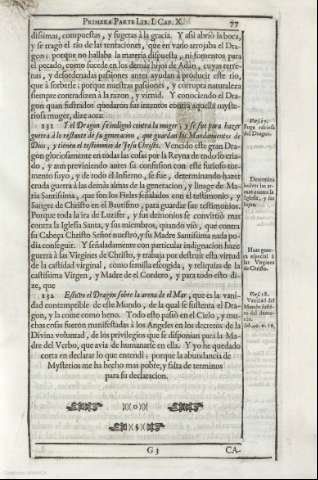 PRIMERA PARTE LIB. I. CAP. X.
77
dissimas, compuestas, y sugetas à la gracia. Y assi abriò la boca,
y se tragò el rio de las tentaciones, que en vano arrojaba el Dra-
gon; porque no hallaba la materia dispuesta, ni fomentos para
el pecado, como sucede en los demàs hijos de Adàn, cuyas terre-
nas, y desordenadas passiones antes ayudan à producir este rio,
que à sorberle; porque nuestras passiones, y corrupta naturaleza
siempre contradizen à la razon, y virtud. Y conociendo el Dragon
quan frustrados quedaron sus intentos contra aquella myste-
riosa muger, dize aora:
131 Y el Dragon se indignò contra la muger; y se fue para hazer
guerra à lo restante de su generacion, que guardan los Mandamientos de
Dios, y tienen el testimonio de Jesu Christo. Vencido este gran Dra-
gon gloriosamente en todas las cosas por la Reyna de todo lo cria-
do, y aun previniendo antes su confusion con este furioso tor-
mento suyo, y de todo el Infierno, se fue, determinando hazer
cruda guerra à las demàs almas de la generacion, y linage de Ma-
ria Santissima, que son los Fieles señalados con el testimonio, y
Sangre de Christo en el Bautismo, para guardar sus testimonios.
Porque toda la ira de Luzifer, y sus demonios se convirtiò mas
contra la Iglesia Santa, y sus miembros, quando viò, que contra
su Cabeça Christo Señor nuestro, y su Madre Santissima nada po-
dia conseguir. Y señaladamente con particular indignacion haze
guerra à las Virgines de Christo, y trabaja por destruir esta virtud
de la castidad virginal, como semilla escogida, y reliquias de la
castissima Virgen, y Madre de el Cordero, y para todo esto di-
ze, que
132 Estuvo el Dragon sobre la arena de el Mar, que es la vani-
dad contemptible de este Mundo, de la qual se sustenta el Dra-
gon, y la come como heno. Todo esto passò en el Cielo, y mu-
chas cosas fueron manifestadas à los Angeles en los decretos de la
Divina voluntad, de los privilegios que se disponian para la Ma-
dre del Verbo, que avia de humanarse en ella. Y yo he quedado
corta en declarar lo que entendì; porque la abundancia de
Mysterios me ha hecho mas pobre, y falta de terminos
para su declaracion.
Determina
Iglesia, y sus
Haze guer-
ra especial à
las Virgines
de Christo.
Vanidad del
Mundo
G 3
CA-